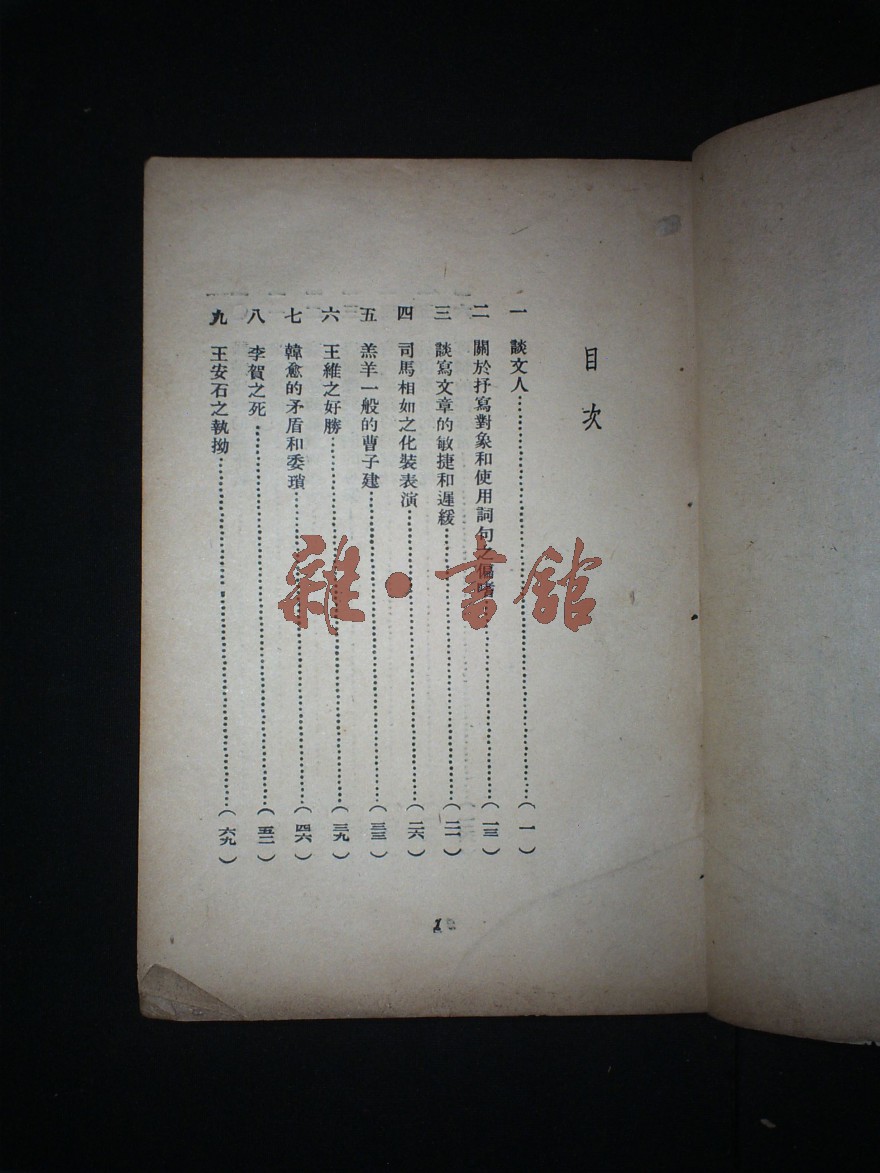 目次
一 談文人……（一）
二 關於抒寫對象和使用詞句之偏嗜……（一三）
三 談寫文章的敏捷和遲緩……（二二）
四 司馬相如之化裝表演……（二六）
五 羔羊一般的曹子建……（三三）
六 王維之好勝……（三九）
七 韓愈的矛盾和委瑣……（四六）
八 李賀之死……（五二）
九 王安石之執拗……（六九）
1
雜·書館